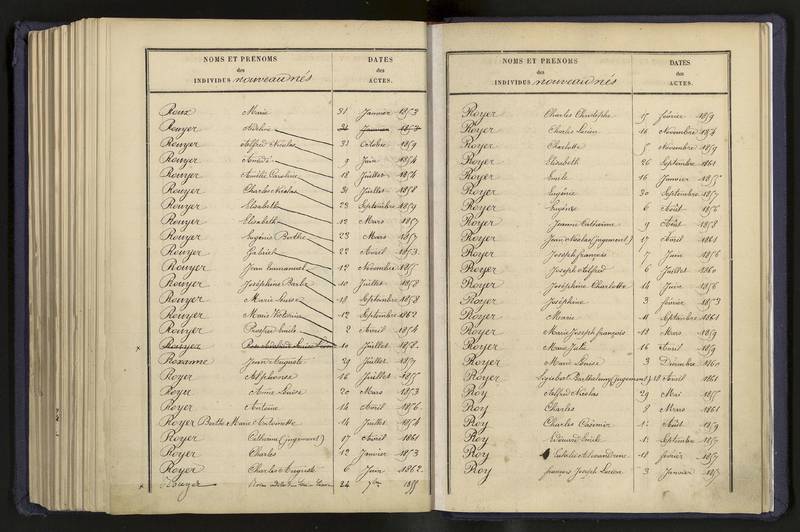 NOMS ET PRENOMS
des
INDIVIDUS nouveaunés
DATES
des
ACTES.
Roux Marie 31 Janvier 1853
Rouyer Adeline 31 Janvier 1853
Rouyer Alfred Nicolas 31 Octobre 1859
Rouyer Amédé 9 Juin 1854
Rouyer Amélie Caroline 18 Juillet 1854
Rouyer Charles Nicolas 31 Juillet 1858
Rouyer Elisabeth 23 Septembre 1859
Rouyer Elisabeth 12 Mars 1857
Rouyer Eugénie Berthe 23 Mars 1857
Rouyer Gabriel 22 Avril 1853
Rouyer Jean Emmanuel 12 Novembre
Rouyer Joséphine Barbe 10 Juillet 1858
Rouyer Marie Louise 18 Septembre 1858
Rouyer Marie Victorine 12 Septembre 1862
Rouyer Prosper Emile 2 Avril 1854
x Rouyer 10 Juillet 1858
Roxanne Jean Auguste 29 Juillet
Royer Alphonse 16 Juillet
Royer Anne Louise 20 Mars 1853
Royer Antoine 14 Avril 1856
Royer Berthe Marie Antoinette 14 Juillet 1854
Royer Catherine (jugement) 17 Avril 1861
Royer Charles 12 Janvier 1853
Royer Charles Auguste 6 Juin 1862
x Rouyer 24 7bre
NOMS ET PRENOMS
des
INDIVIDUS nouveaunés
DATES
des
ACTES.
Royer Charles Christophe février 1859
Royer Charles Lucien 16 Novembre 1854
Royer Charlotte 5 Novembre 1859
Royer Elisabeth 26 Septembre 1861
Royer Emile 16 Janvier
Royer Eugénie 30 Septembre 1857
Royer Eugénie 6 Août 1856
Royer Jeanne Catherine 9 Août 1858
Royer Jean Nicolas (jugement) 17 Avril 1861
Royer Joseph françois 7 Juin 1856
Royer Joseph Alfred 6 Juillet 1860
Royer Joséphine Charlotte 14 Juin 1856
Royer Joséphine 3 février 1853
Royer Marie 11 Septembre 1861
Royer Marie Joseph françois 18 Mars 1859
Royer Marie Julie 16 Avril 1859
Royer Marie Louise 3 Décembre 1860
Royer Sigisbert Barthélemy (jugement) 18 Avril 1861
Roy Alfred Nicolas 29 Mai
Roy Charles 8 Mars 1861
Roy Charles Casimir Août 1859
Roy Edouard Emile Septembre 1857
Roy Eulalie Alexandrine 18 février 1857
Roy françois Joseph Lucien 3 Janvier